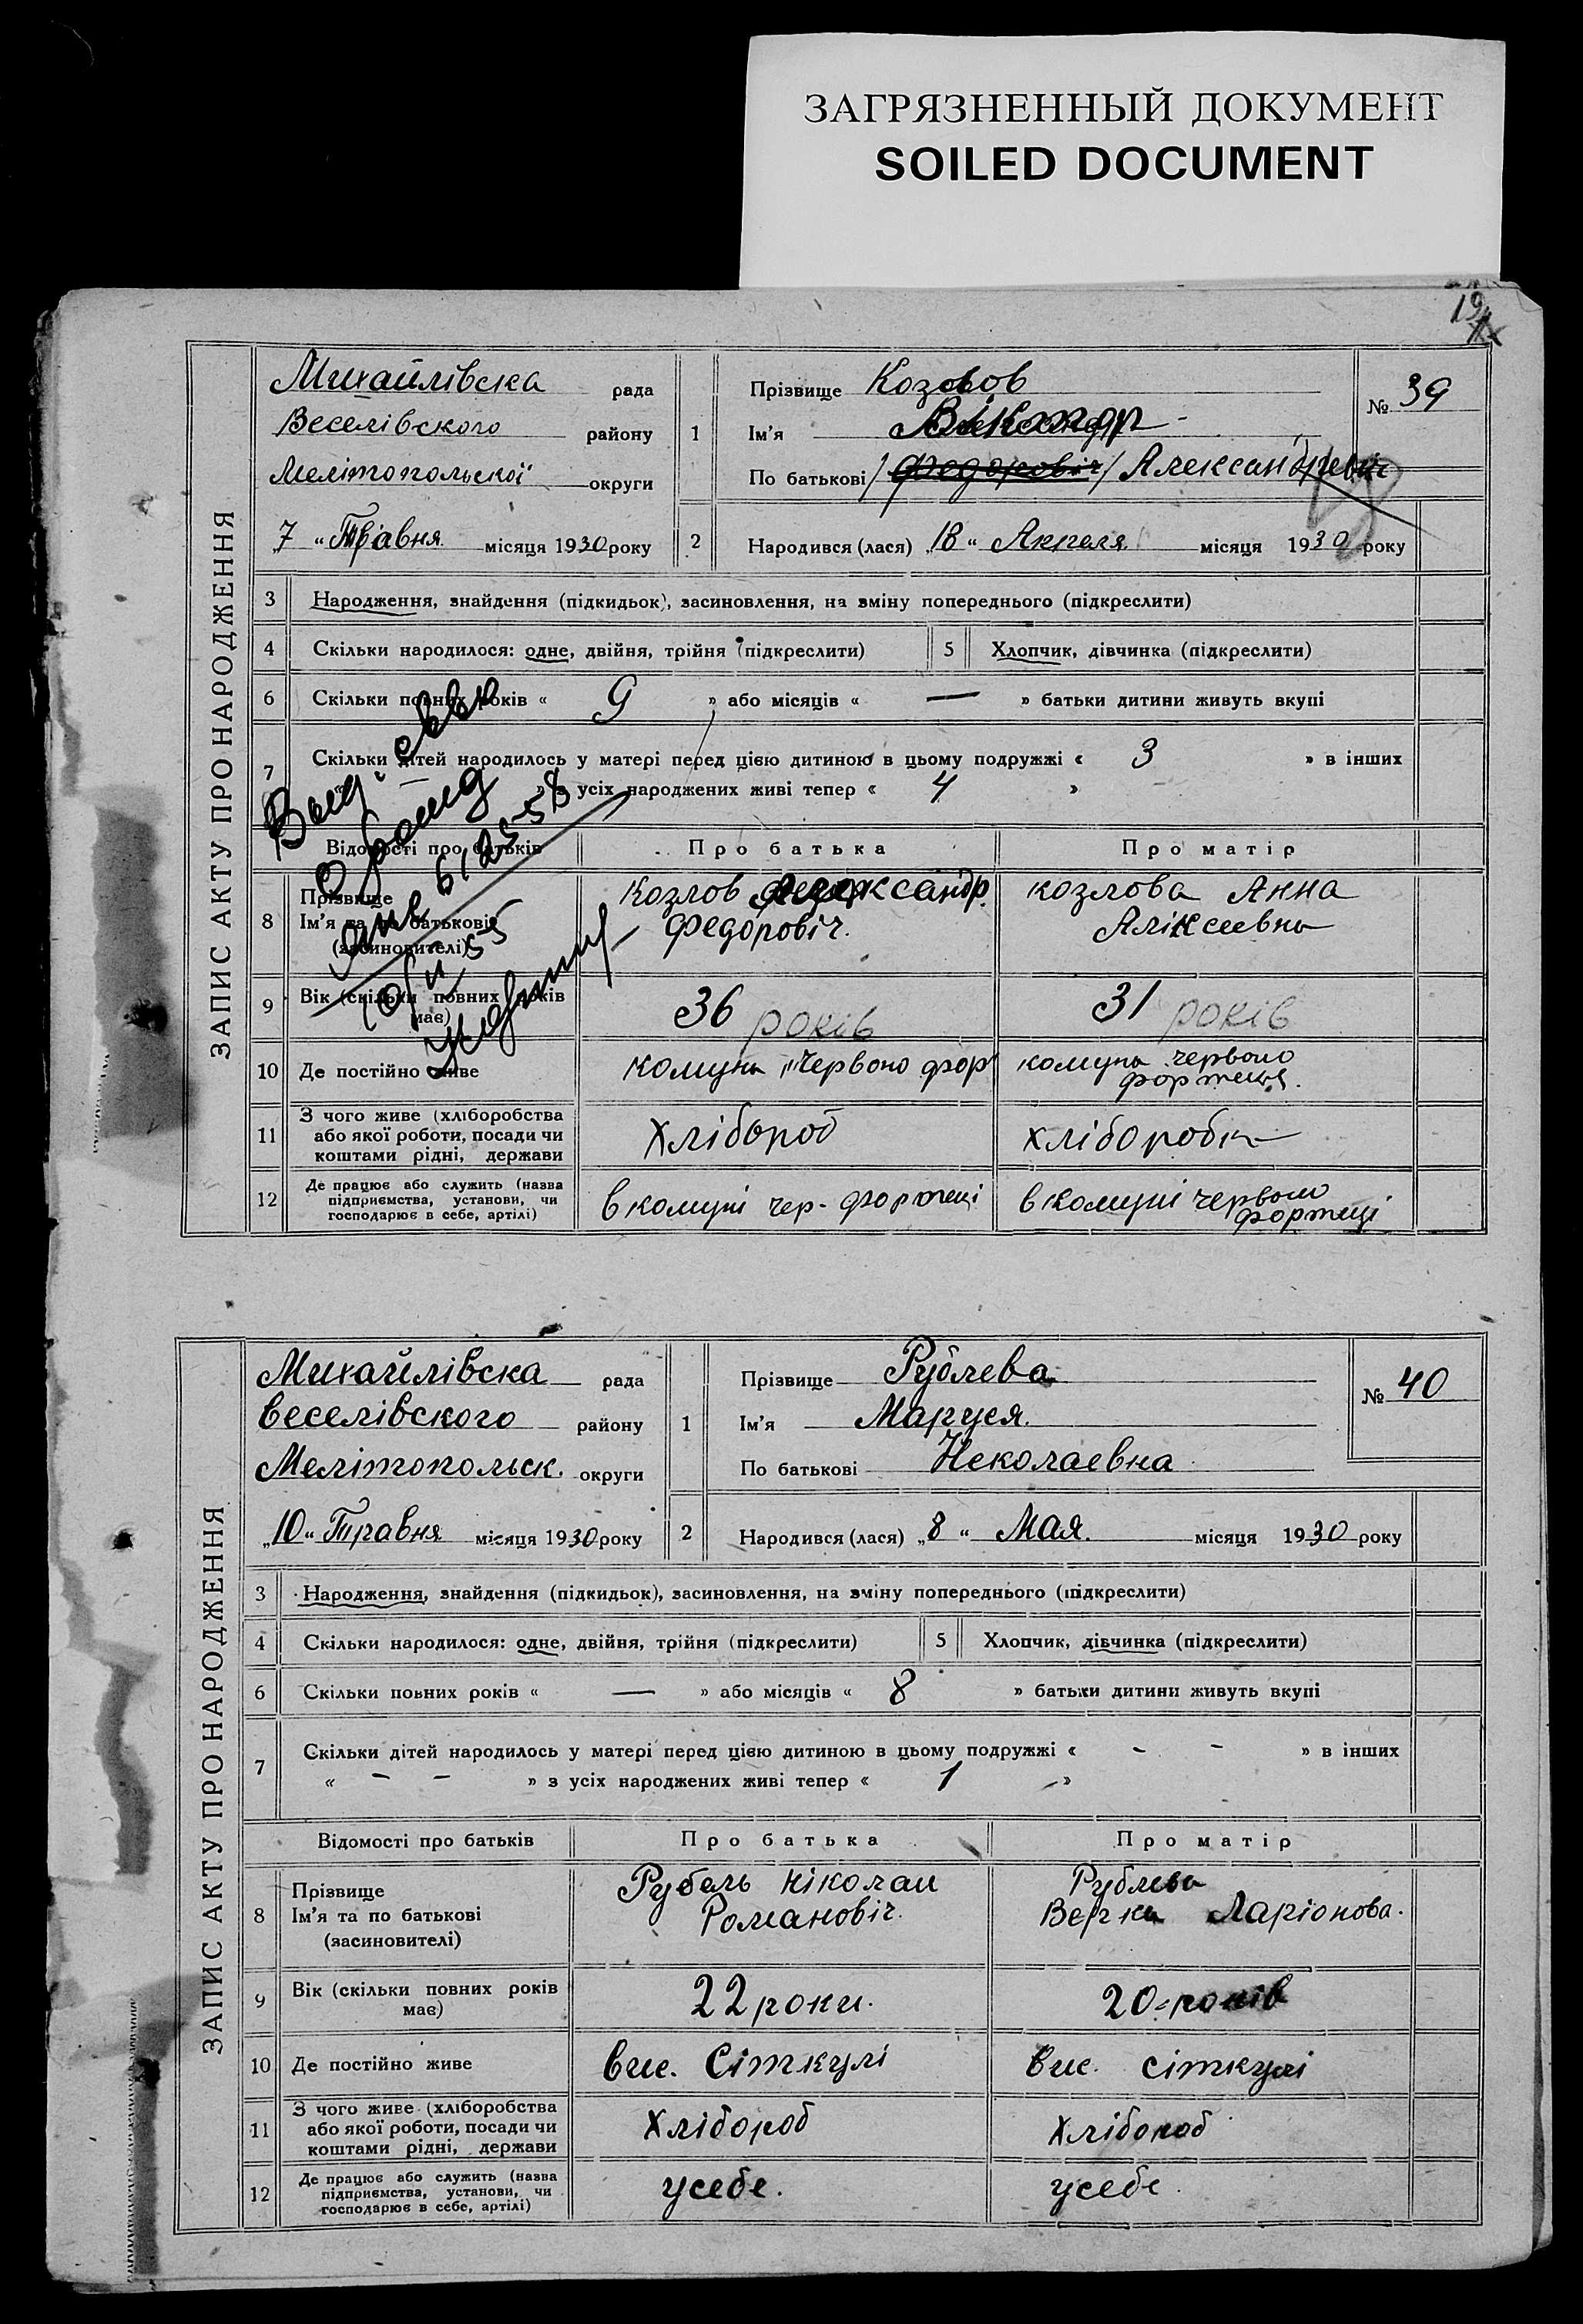 ЗАГРЯЗНЕННЫЙ ДОКУМЕНТ
SOILED DOCUMENT
19
ЗАПИС АКТУ ПРО НАРОДЖЕННЯ
Михайлівска рада
Веселівского району
Мелітопольскої округи
„7 “ Травня місяця 1930 року
1 Прізвище Козлов
Ім'я
По батькові / Федорович / Александревіч
№ 39
2 Народився (лася) „18 “ Апреля місяця 1930 року
3 Народження, знайдення (підкидьок), засиновлення, на зміну попереднього (підкреслити)
4 Скільки народилося: одне, двійня, трійня (підкреслити) 5 Хлопчик, дівчинка (підкреслити)
6 Скільки повних років « 9 » або місяців « — » батьки дитини живуть вкупі
7 Скільки дітей народилось у матері перед цією дитиною в цьому подружжі « 3 » в інших
« — » з усіх народжених живі тепер « 4 »
Выд. св-во
Відомості про батьків Про батька Про матір
8 Прізвище
Ім'я та по батькові
(засиновителі)
Козлов Александр
Федоровіч.
козлова Анна
Аліксеевна
9 Вік (скільки повних років
має)
36 років
31 років
10 Де постійно живе
комуна "Червоно фор
комуна червоно
фортеця.
11 З чого живе (хліборобства
або якої роботи, посади чи
коштами рідні, держави
Хлібороб
хлібороб
12 Де працює або служить (назва
підприємства, установи, чи
господарює в себе, артілі)
в комуні чер- фортеці
в комуні червоно
фортеці
ЗАПИС АКТУ ПРО НАРОДЖЕННЯ
Михайлівска рада
Веселівского району
Мелітопольск. округи
„10 “ Травня місяця 1930 року
1 Прізвище Рублева
Ім'я Маруся.
По батькові Неколаевна
№ 40
2 Народився (лася) „8 “ Мая. місяця 1930 року
3 Народження, знайдення (підкидьок), засиновлення, на зміну попереднього (підкреслити)
4 Скільки народилося: одне, двійня, трійня (підкреслити) 5 Хлопчик, дівчинка (підкреслити)
6 Скільки повних років « — » або місяців « 8 » батьки дитини живуть вкупі
7 Скільки дітей народилось у матері перед цією дитиною в цьому подружжі « - - » в інших
« - - » з усіх народжених живі тепер « 1 »
Відомості про батьків Про батька Про матір
8 Прізвище
Ім'я та по батькові
(засиновителі)
Рубель Ніколаи
Романовіч.
Рублева
Ларіонова.
9 Вік (скільки повних років
має)
22 роки.
20 років
10 Де постійно живе
вис. Сіткулі
вис. сіткулі
11 З чого живе (хліборобства
або якої роботи, посади чи
коштами рідні, держави
Хлібороб
Хлібороб
12 Де працює або служить (назва
підприємства, установи, чи
господарює в себе, артілі)
усебе.
усебе.